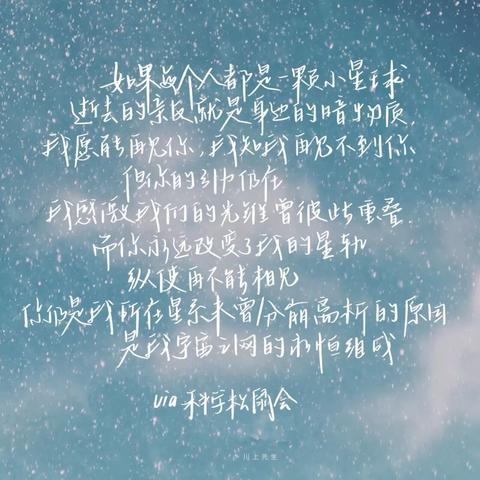 如果每个人都是一颗小星球
逝去的亲友就是身边的暗物质.
我愿能再见你,我知我再见不到你
但你的引力仍在.
我感激我们的光锥曾彼此重叠.
而你永远改变了我的星轨
纵使再不能相见
你仍是我所在星系未曾分崩离析的原因
是我宇宙之网的永恒组成
via 科学松鼠会
川上先生